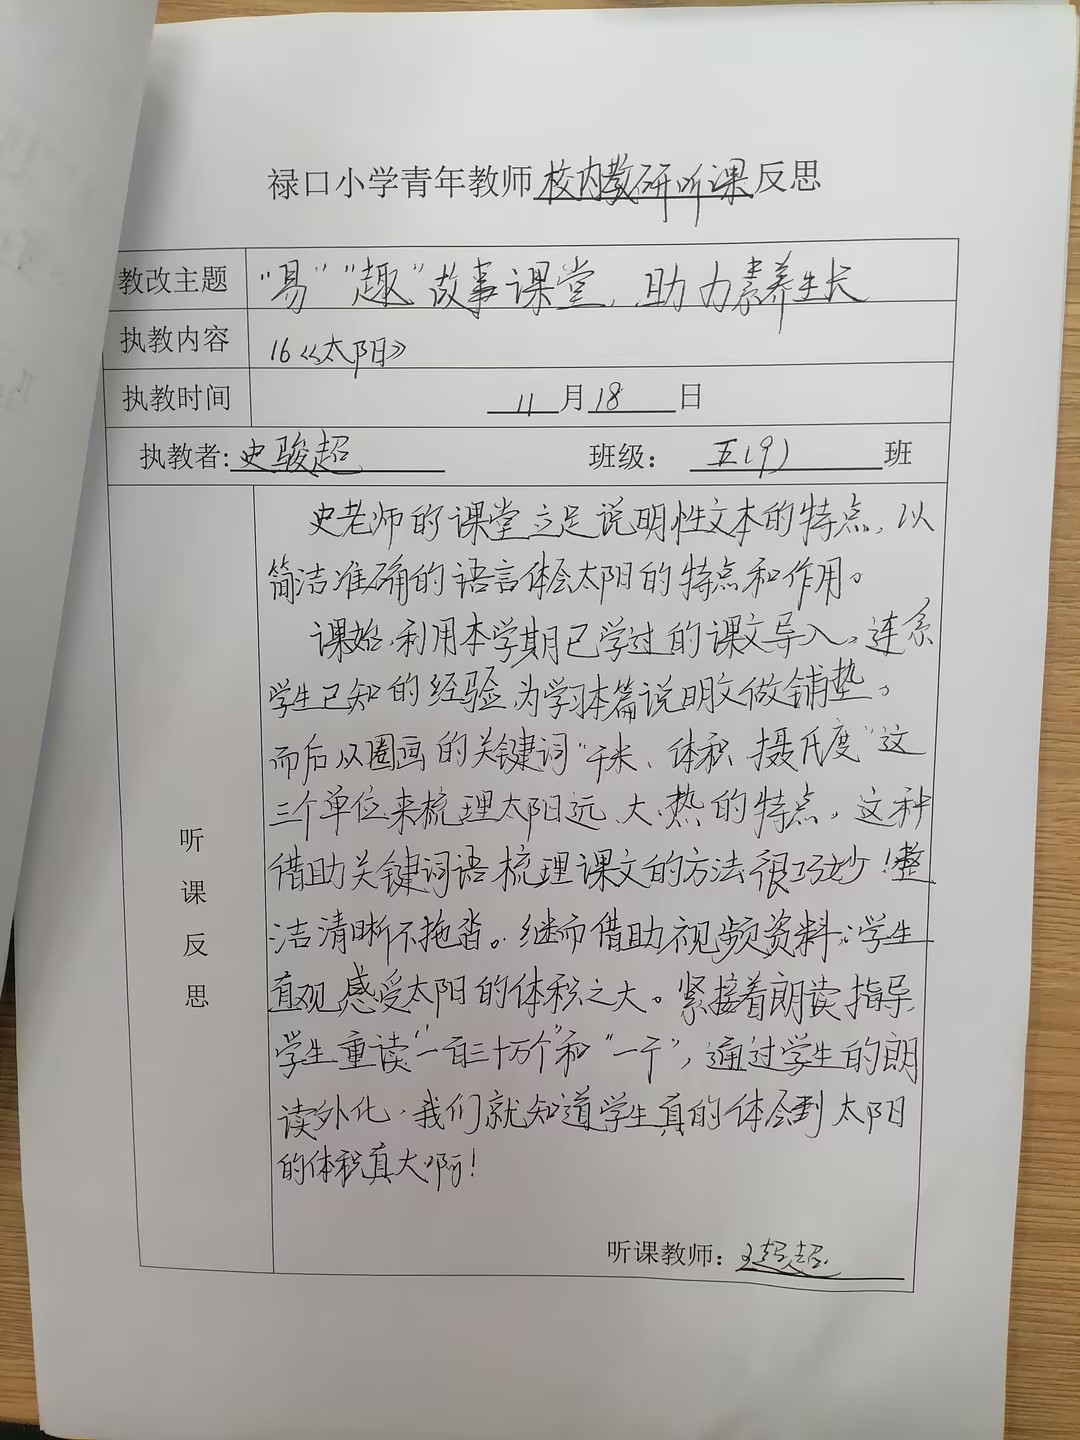 禄口小学青年教师校内教研听课反思
教改主题 “易”“趣”故事课堂，助力素养生长
执教内容 16《太阳》
执教时间 11月18日
执教者:史骏超 班级：五(9)班
听课反思
史老师的课堂立足说明性文本的特点，以
简洁准确的语言体会太阳的特点和作用。
课始，利用本学期已学过的课文导入，连系
学生已知的经验，为学习本篇说明文做铺垫。
而后以圈画的关键词“千米、体积、摄氏度”这
三个单位来梳理太阳远、大、热的特点，这种
借助关键词语梳理课文的方法很巧妙！整
洁清晰不拖沓。继而借助视频资料，学生
直观感受太阳的体积之大。紧接着朗读指导，
学生重读“一百三十万个”和“一个”，通过学生的朗
读外化，我们就知道学生真的体会到太阳
的体积真大啊！
听课教师：王超超